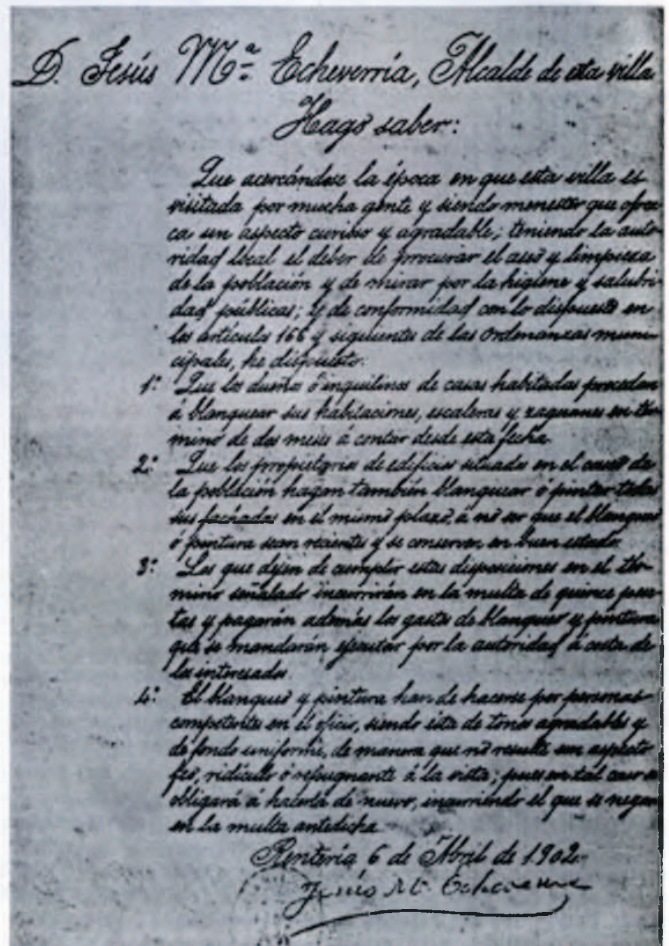 D. Jesús Mª Echeverría, Alcalde de esta villa
Hago saber:
Que acercándose la época en que esta villa es
visitada por mucha gente y siendo menester que ofrez
ca un aspecto curioso y agradable; teniendo la auto
ridad local el deber de procurar el aseo y limpieza
de la población y de mirar por la higiene y salubri
dad públicas; y de conformidad con lo dispuesto en
los artículos 166 y siguientes de las Ordenanzas muni
cipales, he dispuesto:
1º Que los dueños ó inquilinos de casas habitadas procedan
á blanquear sus habitaciones, escaleras y zaguanes en tér
mino de dos meses á contar desde esta fecha.
2º Que los propietarios de edificios situados en el casco de
la población hagan también blanquear ó pintar todas
sus fachadas en el mismo plazo, á no ser que el blanqueo
ó pintura sean recientes y se conserven en buen estado.
3º Los que dejen de cumplir estas disposiciones en el tér
mino señalado incurrirán en la multa de quince pese
tas y pagarán además los gastos de blanqueo y pintura
que se mandarán ejecutar por la autoridad á costa de
los interesados.
4º El blanqueo y pintura han de hacerse por personas
competentes en el oficio, siendo ésta de tonos agradables y
de fondo uniforme, de manera que no resulte un aspecto
feo, ridículo ó repugnante á la vista; pues en tal caso se
obligará á hacerla de nuevo, incurriendo el que se negare
en la multa antedicha.
Rentería 6 de Abril de 1902.
Jesús Mª Echeverria